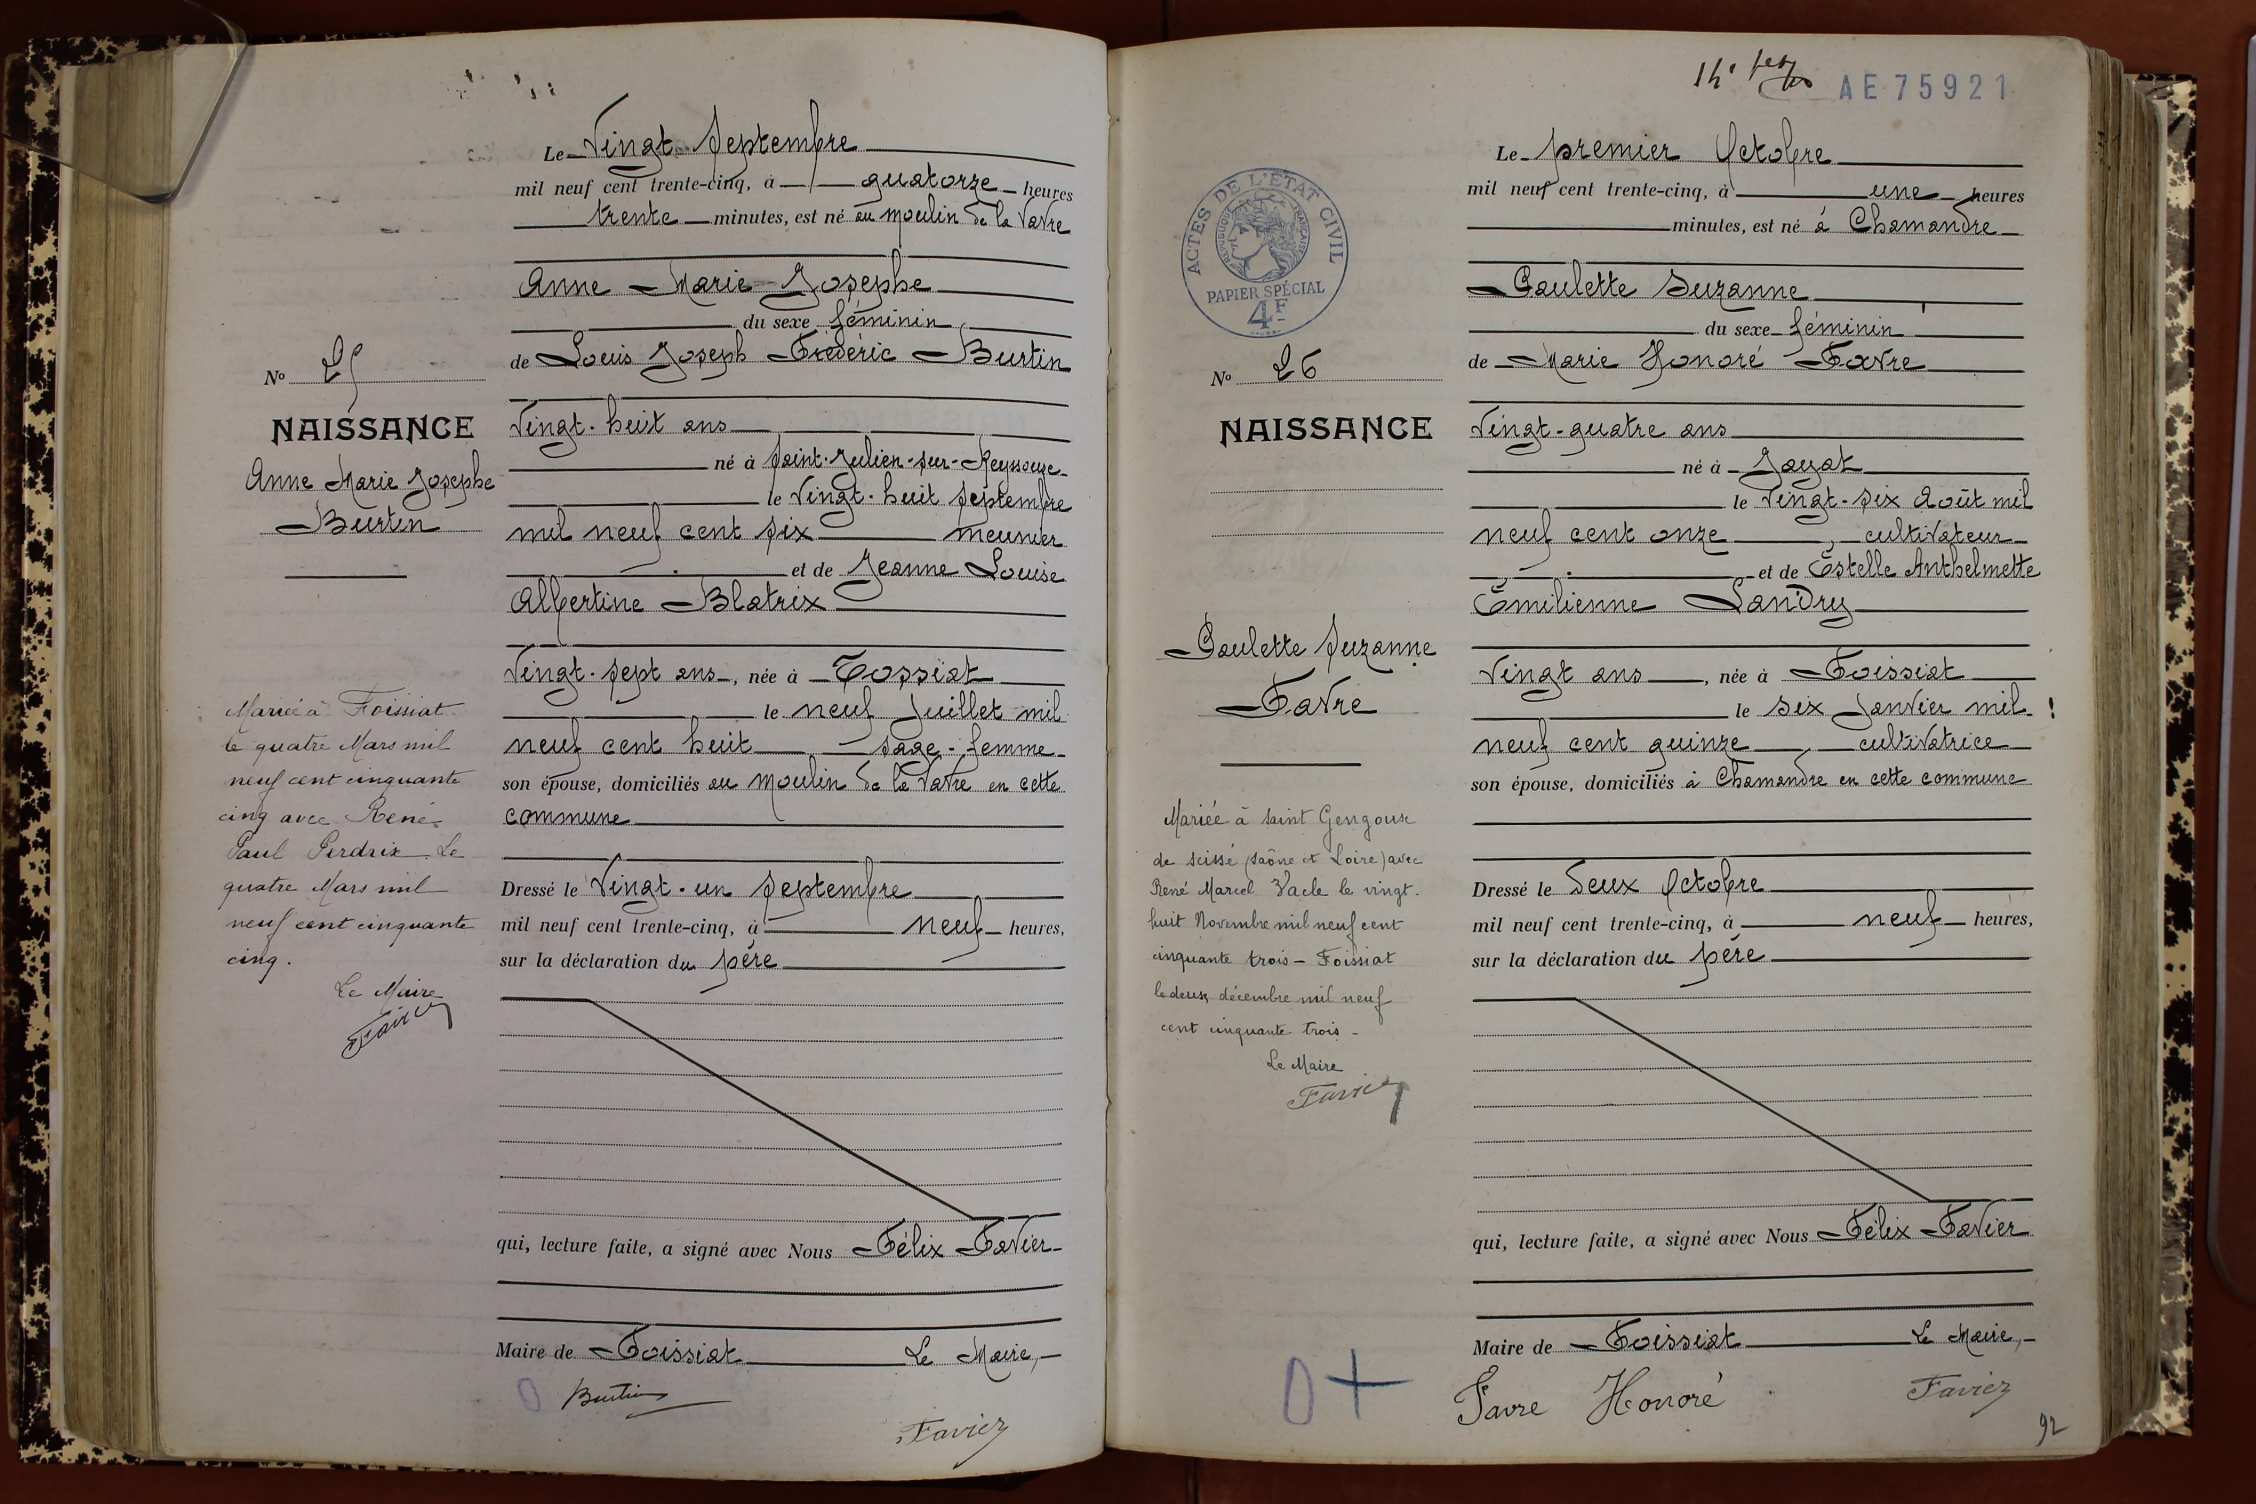 Le Vingt Septembre
mil neuf cent trente-cinq, à quatorze heures
trente minutes, est né au Moulin de la Vavre
Anne Marie Josephe
du sexe féminin
de Louis Joseph Frédéric Burtin
Vingt-huit ans
né à Saint-Julien-sur-Reyssouze
le Vingt-huit Septembre
mil neuf cent six meunier
et de Jeanne Louise
Albertine Blatrix
Vingt-sept ans, née à Tossiat
le neuf Juillet mil
neuf cent huit, sage-femme
son épouse, domiciliés au Moulin de la Vavre en cette
commune
Dressé le Vingt-un Septembre
mil neuf cent trente-cinq, à neuf heures,
sur la déclaration du père
qui, lecture faite, a signé avec Nous Félix Favier
Maire de Foissiat Le Maire,
Burtin
Favier
No 25
NAISSANCE
Anne Marie Josephe
Burtin
Mariée à Foissiat
le quatre Mars mil
neuf cent cinquante
cinq avec René
Paul Perdrix. Le
quatre Mars mil
neuf cent cinquante
cinq.
Le Maire
Favier
14e
AE 75921
Le premier Octobre
mil neuf cent trente-cinq, à une heures
minutes, est né à Chamandre
Paulette Suzanne
du sexe féminin
de Marie Honoré Favre
Vingt-quatre ans
né à Jayat
le Vingt-six Août mil
neuf cent onze, cultivateur
et de Estelle Anthelmette
Emilienne Landry
Vingt ans, née à Foissiat
le six Janvier mil
neuf cent quinze, cultivatrice
son épouse, domiciliés à Chamandre en cette commune
Dressé le deux Octobre
mil neuf cent trente-cinq, à neuf heures,
sur la déclaration du père
qui, lecture faite, a signé avec Nous Félix Favier
Maire de Foissiat Le Maire,
Favre Honoré
Favier
92
ACTES DE L'ÉTAT CIVIL
RÉPUBLIQUE FRANÇAISE
PAPIER SPÉCIAL
4F
No 26
NAISSANCE
Paulette Suzanne
Favre
Mariée à Saint Gengoux
de Scissé (Saône et Loire) avec
René Marcel Vacle le vingt-
huit Novembre mil neuf cent
cinquante trois - Foissiat
le deux décembre mil neuf
cent cinquante trois -
Le Maire
Favier